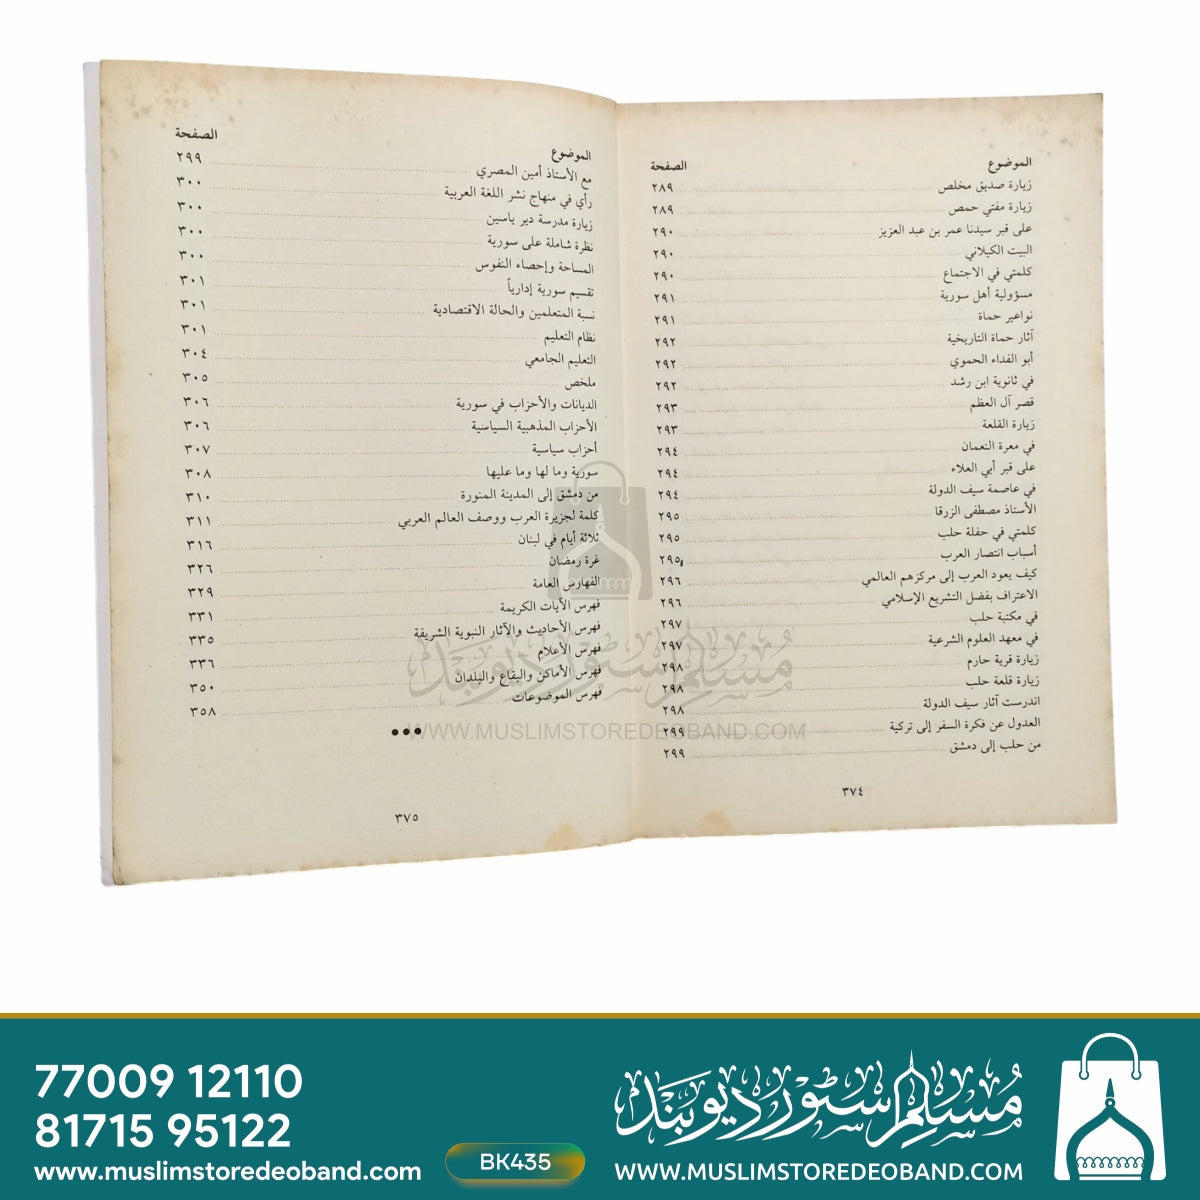 الموضوع الصفحة
زيارة صديق مخلص ٢٨٩
زيارة مفتي حمص ٢٨٩
على قبر سيدنا عمر بن عبد العزيز ٢٩٠
البيت الكيلاني ٢٩٠
كلمتي في الاجتماع ٢٩٠
مسؤولية أهل سورية ٢٩١
نواعير حماة ٢٩١
آثار حماة التاريخية ٢٩٢
أبو الفداء الحموي ٢٩٢
في ثانوية ابن رشد ٢٩٢
قصر آل العظم ٢٩٣
زيارة القلعة ٢٩٣
في معرة النعمان ٢٩٤
على قبر أبي العلاء ٢٩٤
في عاصمة سيف الدولة ٢٩٤
الأستاذ مصطفى الزرقا ٢٩٥
كلمتي في حفلة حلب ٢٩٥
أسباب انتصار العرب ٢٩٥
كيف يعود العرب إلى مركزهم العالمي ٢٩٦
الاعتراف بفضل التشريع الإسلامي ٢٩٦
في مكتبة حلب ٢٩٧
في معهد العلوم الشرعية ٢٩٧
زيارة قرية حارم ٢٩٨
زيارة قلعة حلب ٢٩٨
اندرست آثار سيف الدولة ٢٩٨
العدول عن فكرة السفر إلى تركية ٢٩٩
من حلب إلى دمشق ٢٩٩
٣٧٤
الموضوع الصفحة
مع الأستاذ أمين المصري ٢٩٩
رأي في منهاج نشر اللغة العربية ٣٠٠
زيارة مدرسة دير ياسين ٣٠٠
نظرة شاملة على سورية ٣٠٠
المساحة وإحصاء النفوس ٣٠٠
تقسيم سورية إدارياً ٣٠١
نسبة المتعلمين والحالة الاقتصادية ٣٠١
نظام التعليم ٣٠١
التعليم الجامعي ٣٠٤
ملخص ٣٠٥
الديانات والأحزاب في سورية ٣٠٦
الأحزاب المذهبية السياسية ٣٠٦
أحزاب سياسية ٣٠٧
سورية وما لها وما عليها ٣٠٨
من دمشق إلى المدينة المنورة ٣١٠
كلمة لجزيرة العرب ووصف العالم العربي ٣١١
ثلاثة أيام في لبنان ٣١٦
غرة رمضان ٣٢٦
الفهارس العامة ٣٢٩
فهرس الآيات الكريمة ٣٣١
فهرس الأحاديث والآثار النبوية الشريفة ٣٣٥
فهرس الأعلام ٣٣٦
فهرس الأماكن والبقاع والبلدان ٣٥٠
فهرس الموضوعات ٣٥٨
٣٧٥
مسلم سٹور دیوبند
WWW.MUSLIMSTOREDEOBAND.COM
77009 12110
81715 95122
www.muslimstoredeoband.com
BK435
مسلم سٹور دیوبند
WWW.MUSLIMSTOREDEOBAND.COM